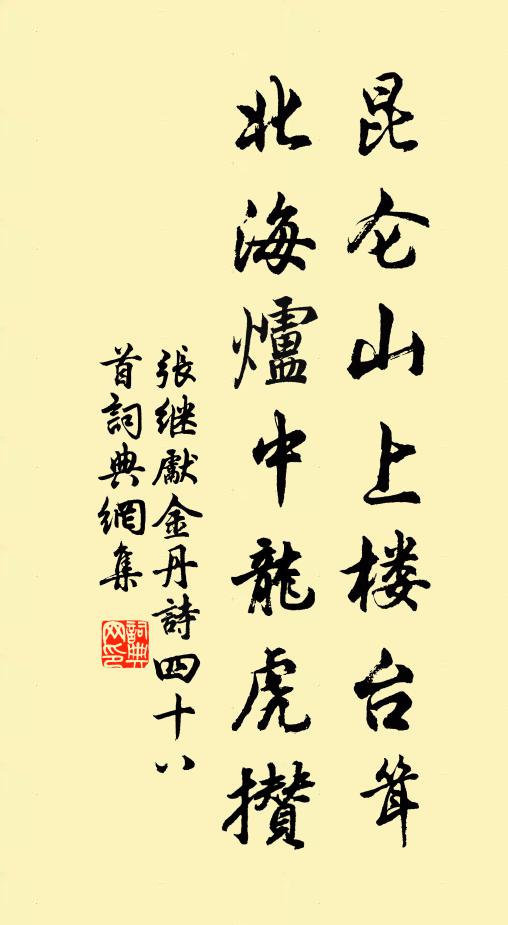 昆仑山上楼台耸
北海爐中龍虎攢
張继獻金丹詩四十八
首詞典網集
詞典
网印